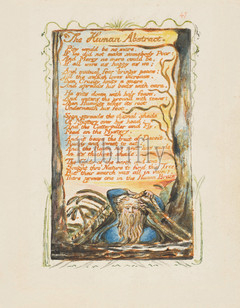 The Human Abstract.
Pity would be no more,
If we did not make somebody Poor
And Mercy no more could be,
If all were as happy as we;
And mutual fear brings peace;
Till the selfish loves increase.
Then Cruelty knits a snare,
And spreads his baits with care.
He sits down with holy fears,
And waters the ground with tears:
Then Humility takes its root
Underneath his foot.
Soon spreads the dismal shade
Of Mystery over his head;
And the Catterpiller and Fly,
Feed on the Mystery.
And it bears the fruit of Deceit,
Ruddy and sweet to eat;
And the Raven his nest has made
In its thickest shade.
The Gods of the earth and sea,
Sought thro' Nature to find this Tree
But their search was all in vain:
There grows one in the Human Brain